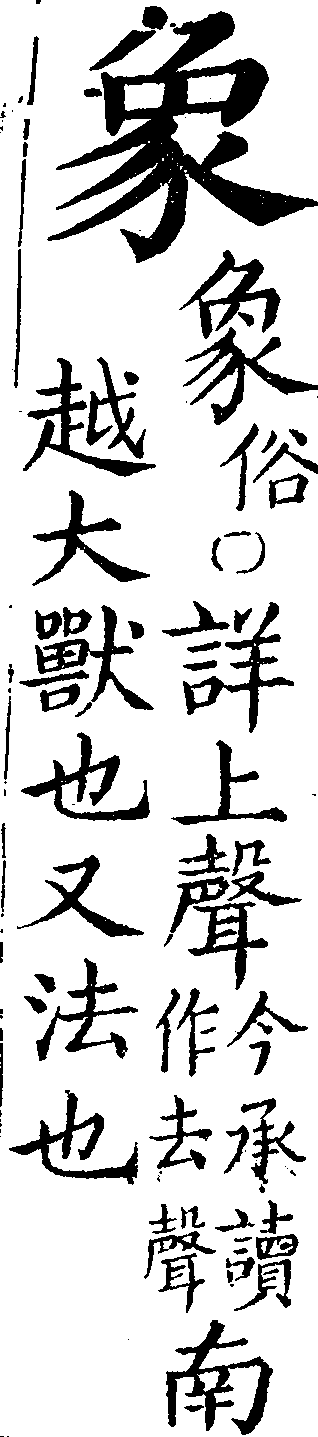 象
𧰼俗○詳上聲今承讀作去聲南
越大獸也又法也